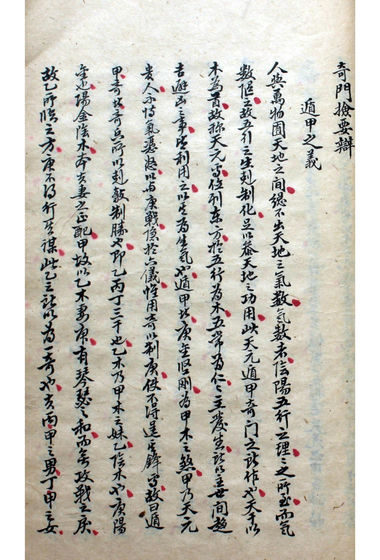 奇門撿要辯
遁甲之義
人與萬物囿天地之間總不出天地之氣數氣數者陰陽五行之理之所至而氣
數隨之故五行之生剋制化足以叅天地之功用此天元遁甲奇門之所作也天干以
木為首故称天元宮位列東方於五行為木五常為仁仁主發生所以世间趋
吉避凶之事皆利用之以其為生氣也遁甲者庚金堅刚為甲木之煞甲乃天元
貴人不恃氣怒以与庚戰隱於六儀惟用奇以制庚使不得逞其鋒鋩故曰遁
甲奇者奇点所以剋敵制勝也即乙丙丁三干也乙木乃甲木之妹乙陰木也庚陽
金也陽金陰木本夫妻之正配甲故以乙木妻庚有琴瑟之和而無攻戰之戾
故乙所临之方庚不得行其謀此乙之所以為一奇也丙甲之男丁甲之女